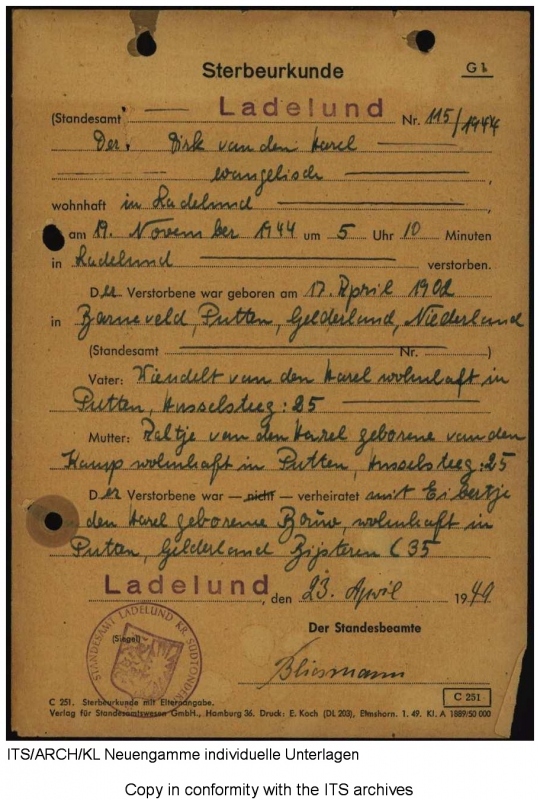 Sterbeurkunde
G 1
(Standesamt Ladelund Nr. 115/1944
Der Dirk van den Harel
evangelisch
wohnhaft in Ladelund
ist am 19. November 1944 um 5 Uhr 10 Minuten
in Ladelund verstorben.
Der Verstorbene war geboren am 17. April 1902
in Barneveld, Putten, Gelderland, Niederland
(Standesamt Nr. )
Vater: van den Harel wohnhaft in
Putten, Husselsteeg: 25
Mutter: van den Harel geborene van den
Kamp wohnhaft in Putten, Husselsteeg: 25
Der Verstorbene war — nicht — verheiratet mit Eibertje
van den Harel geborene wohnhaft in
Putten, Gelderland C 35
Ladelund, den 23. April 1949
Der Standesbeamte
(Siegel)
STANDESAMT LADELUND KR. SÜDTONDERN
C 251
C 251. Sterbeurkunde mit Elternangabe.
Verlag für Standesamtswesen GmbH., Hamburg 36. Druck: E. Koch (DL 203), Elmshorn. 1. 49. Kl. A 1889/50 000
ITS/ARCH/KL Neuengamme individuelle Unterlagen
Copy in conformity with the ITS archives